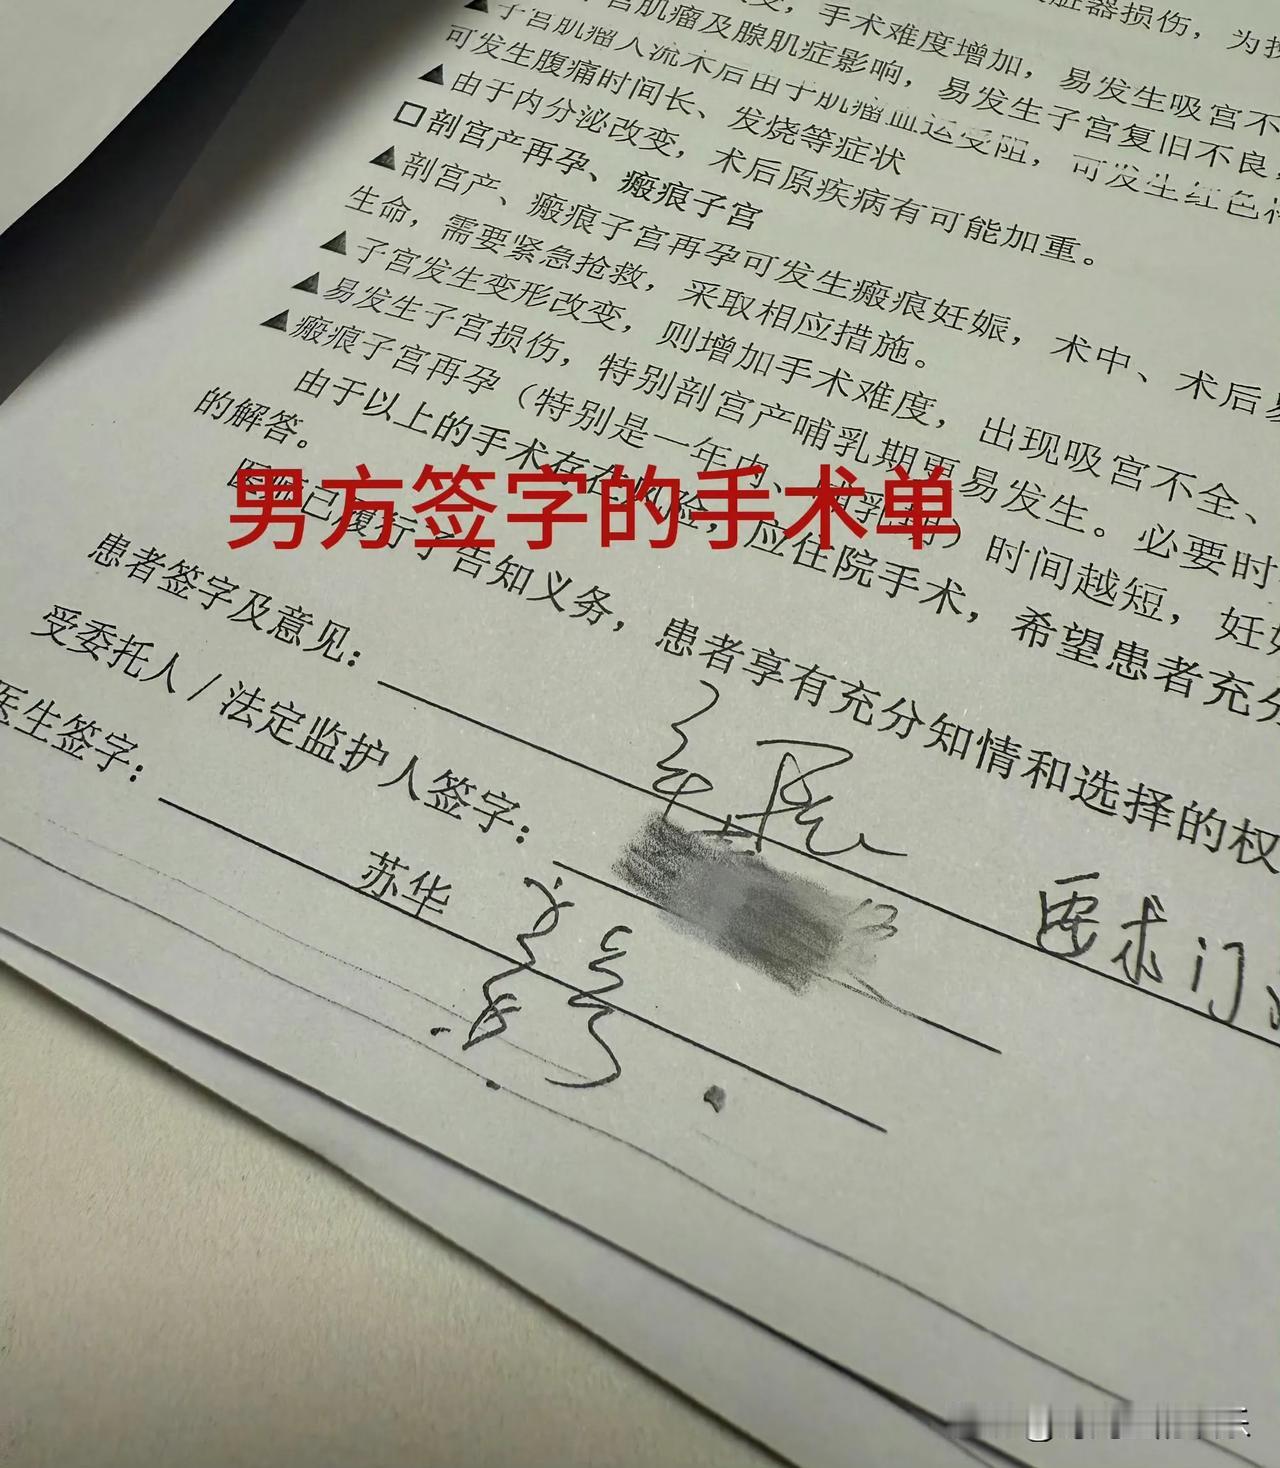 脏器损伤，为
变，手术难度增加，易发生吸宫不
宫肌瘤及腺肌症影响，易发生子宫复旧不良，
▲子宫肌瘤人流术后由于肌瘤血运受阻，可发生红色
可发生腹痛时间长、发烧等症状
▲由于内分泌改变，术后原疾病有可能加重。
□剖宫产再孕、瘢痕子宫
▲剖宫产、瘢痕子宫再孕可发生瘢痕妊娠，术中、术后
生命，需要紧急抢救，采取相应措施。
▲子宫发生变形改变，则增加手术难度，出现吸宫不全、
▲易发生子宫损伤，特别剖宫产哺乳期更易发生。必要时
▲瘢痕子宫再孕（特别是一年内、哺乳期）时间越短，妊
由于以上的手术存在风险，应住院手术，希望患者充分
的解答。
男方签字的手术单
医院已履行了告知义务，患者享有充分知情和选择的权
患者签字及意见：
要求门
受委托人/法定监护人签字：
医生签字：
苏华